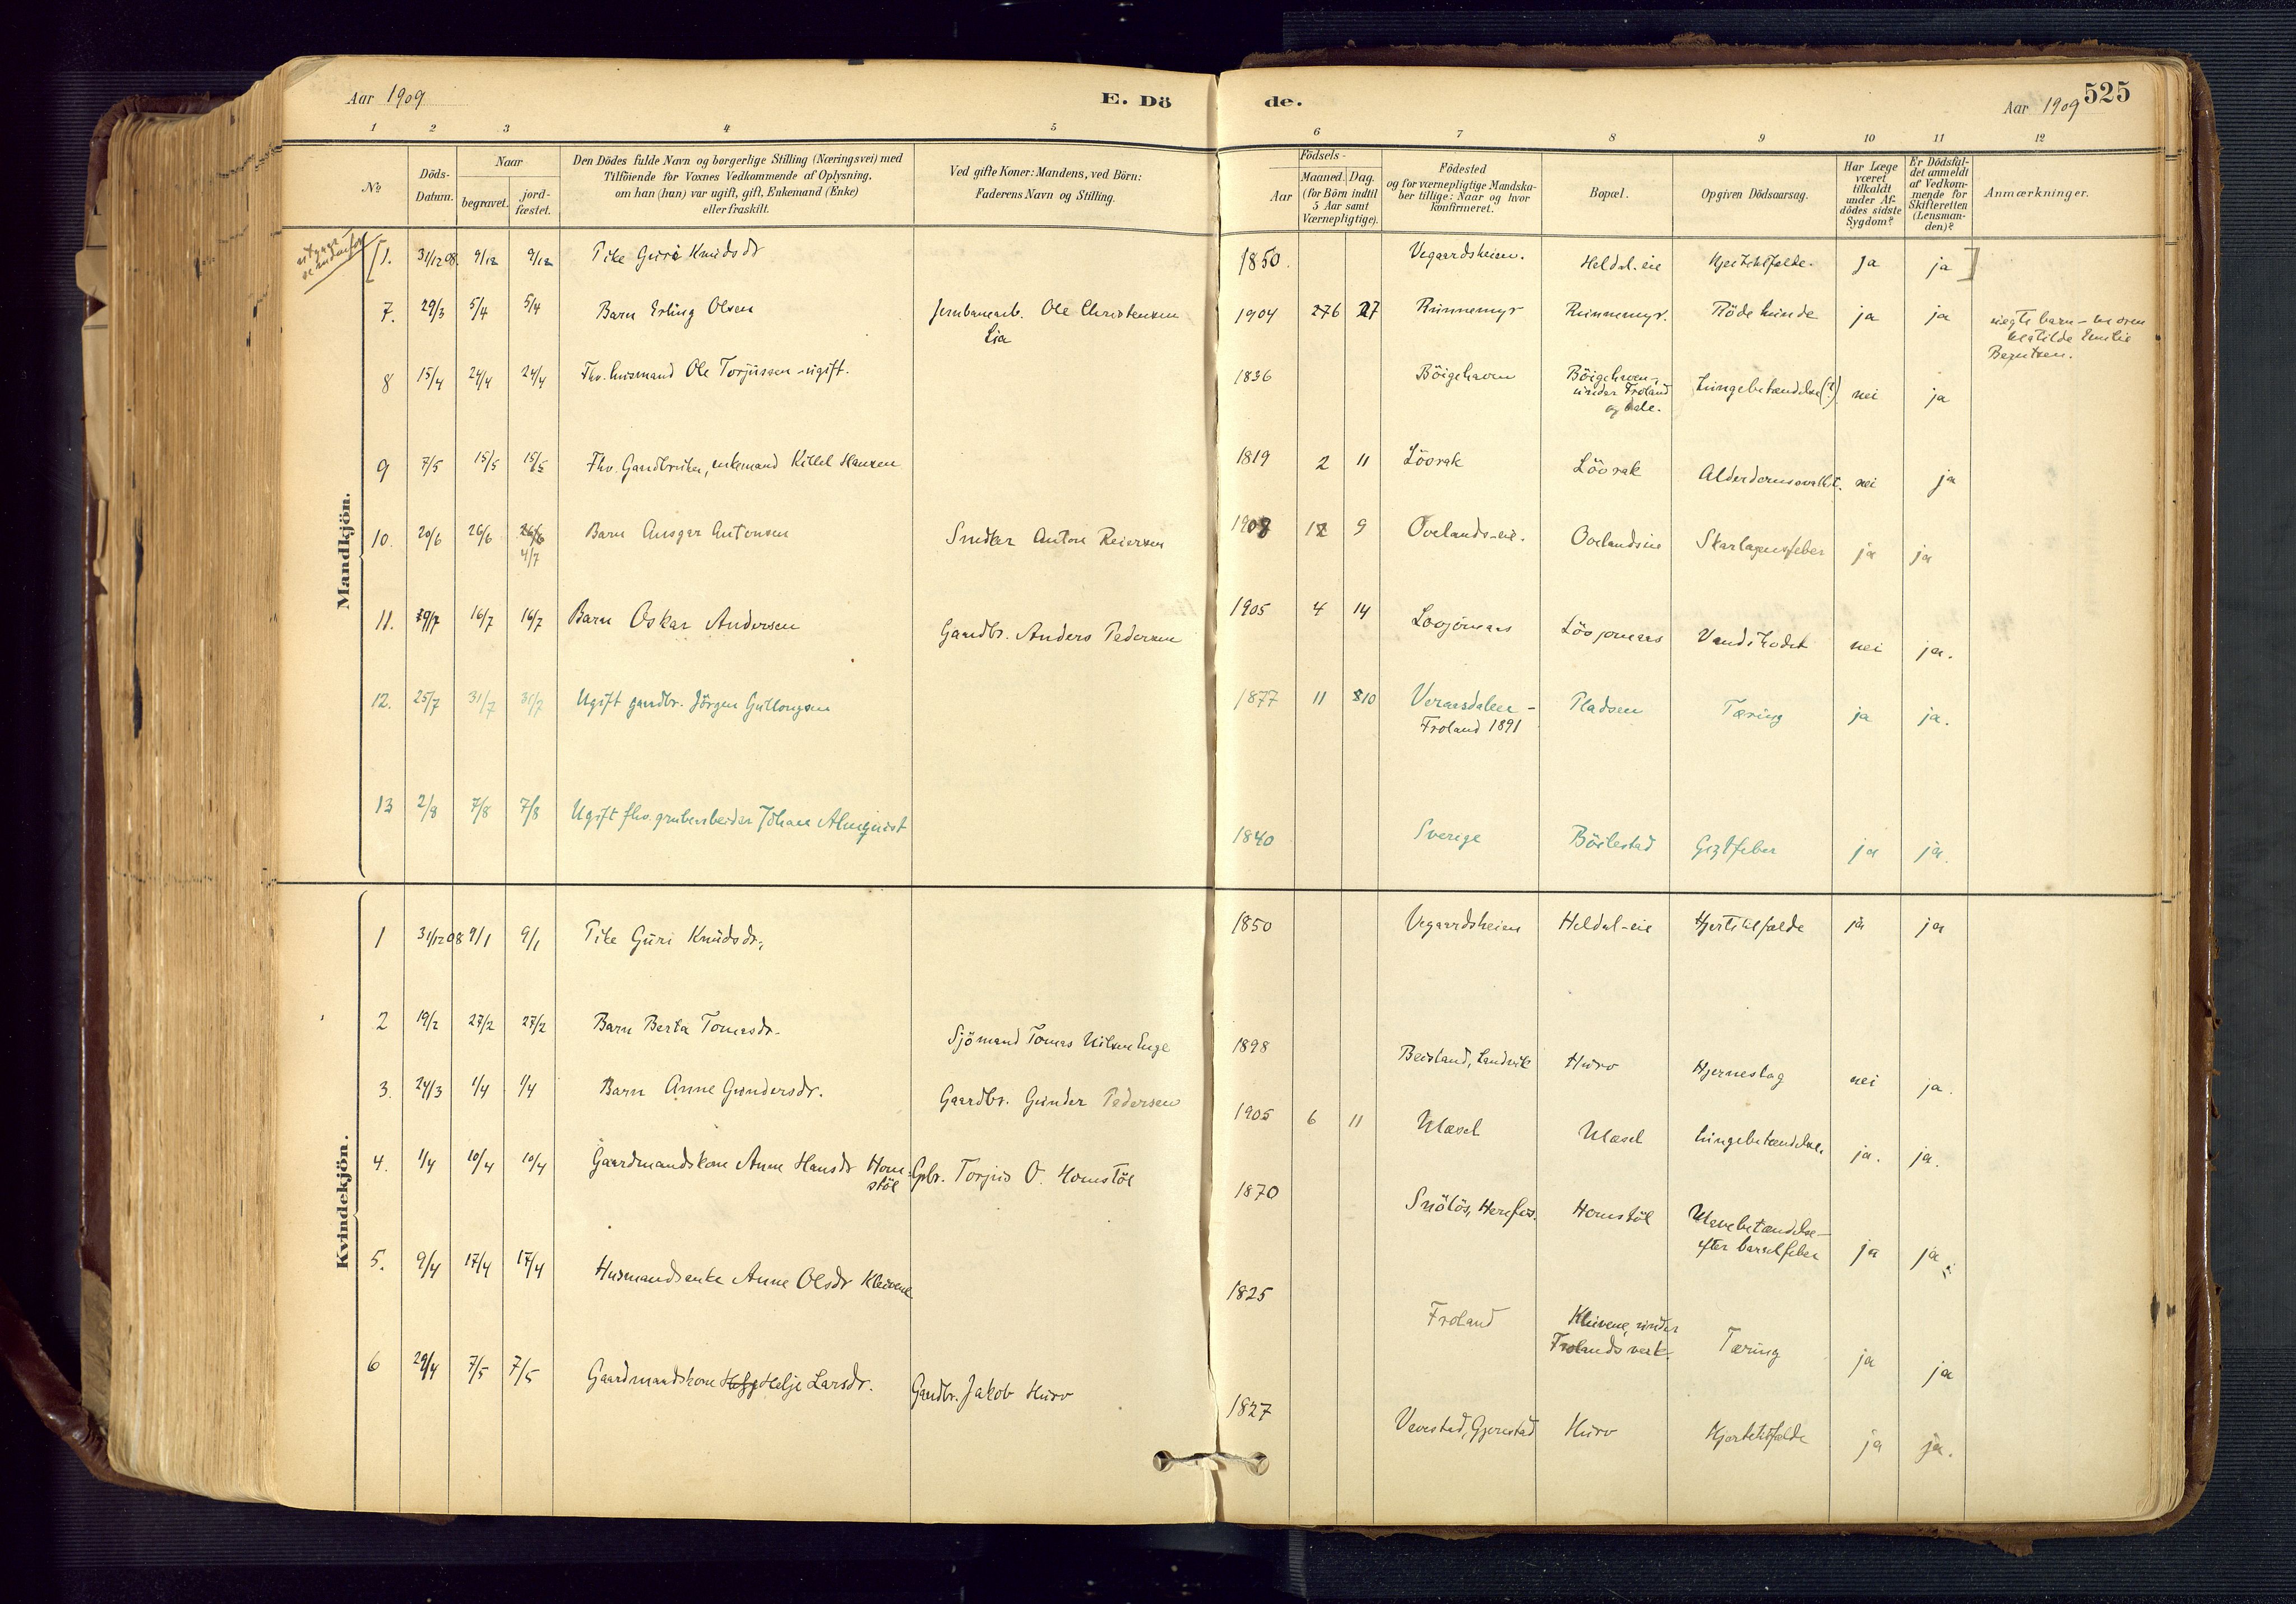 Aar 1909
E. Dö
de.
Aar 1909
525
1 2 3 4 5 6 7 8 9 10 11 12
No
Döds-
Datum.
Naar
begravet.
jord-
fæstet.
Den Dödes fulde Navn og borgerlige Stilling (Næringsvei) med
Tilföiende for Voxnes Vedkommende af Oplysning,
om han (hun) var ugift, gift, Enkemand (Enke)
eller fraskilt.
Ved gifte Koner: Mandens, ved Börn:
Faderens Navn og Stilling.
Födsels-
Aar
Maaned.
Dag.
(for Börn indtil
5 Aar samt
Værnepligtige).
Födested
og for værnepligtige Mandska-
ber tillige: Naar og hvor
konfirmeret.
Bopæl.
Opgiven Dödsaarsag.
Har Læge
været
tilkaldt
under Af-
dödes sidste
Sygdom?
Er Dödsfal-
det anmeldt
af Vedkom-
mende for
Skifteretten
(Lensman-
den)?
Anmærkninger.
Mandkjön.
[1. 31/12 08. 9/12 9/12 Pike Guri Knudsdr 1850. Vegaardsheien. Heldal-eie Hjertetilfælde. Ja ja ]
7. 29/3 5/4 5/4 Barn Erling Olsen Jernbanearb. Ole Christensen
Lia
1904 6 27 Runnemyr Runnemyr. Röde hunde ja ja
uegte barn - moren
Matilde Emilie
Berntsen.
8 15/4 24/4 24/4 Fhv. husmand Ole Torjussen - ugift. 1836 Böigehaven Böigehaven,
under Froland
og Dale.
Lungebetændelse(?) nei ja
9 7/5 15/5 15/5 Fhv. Gaardbruker, enkemand Kittel Hansen 1819 2 11 Lövrak Lövrak Alderdomssvakhet. nei ja
10. 20/6 26/6 26/6
4/7
Barn Ansgar Antonsen Snedker Anton Reiersen 1908 12 9 Ovelands-eie. Ovelandseie Skarlagensfeber ja ja
11. 9/7 16/7 16/7 Barn Oskar Andersen Gaardbr. Anders Pedersen 1905 4 14 Lövjomaas Lövjomaas Vandskodet nei ja.
12. 25/7 31/7 31/7 Ugift gaardbr. Jörgen Guttormsen 1877 11 10 Veraasdalen -
Froland 1891
Pladsen Tæring ja ja.
13 2/8 7/8 7/8 Ugift fhv. grubearbeider Johan Almquist 1840 Sverige Böilestad Gigtfeber ja ja.
Kvindekjön.
1 31/12 08 9/1 9/1 Pike Guri Knudsdr, 1850 Vegaardsheien Heldal-eie Hjertetilfælde ja ja
2 19/2 27/2 27/2 Barn Berta Tomasdr. Sjömand Tomas Nilsen Enge 1898 Beisland, Landvik Hurv Hjerneslag nei ja.
3. 24/3 1/4 1/4 Barn Anne Gundersdr. Gaardbr. Gunder Pedersen 1905 6 11 Mæsel Mæsel Lungebetændelse. ja. ja.
4. 1/4 10/4 10/4 Gaardmandskone Anne Hansdr Hom-
stöl
Gbr. Torjus O. Homstöl 1870 Snölös, Herefos. Homstöl Mavebetændelse -
efter barselfeber
ja ja.
5. 9/4 17/4 17/4 Husmandsenke Anne Olsdr Kleivene 1825 Froland Kleivene, under
Frolands verk.
Tæring ja ja
6 29/4 7/5 7/5 Gaardmandskone Helje Larsdr. Gaardbr. Jakob Hurv 1827 Vevestad, Gjerestad Hurv Hjertetilfælde ja ja.